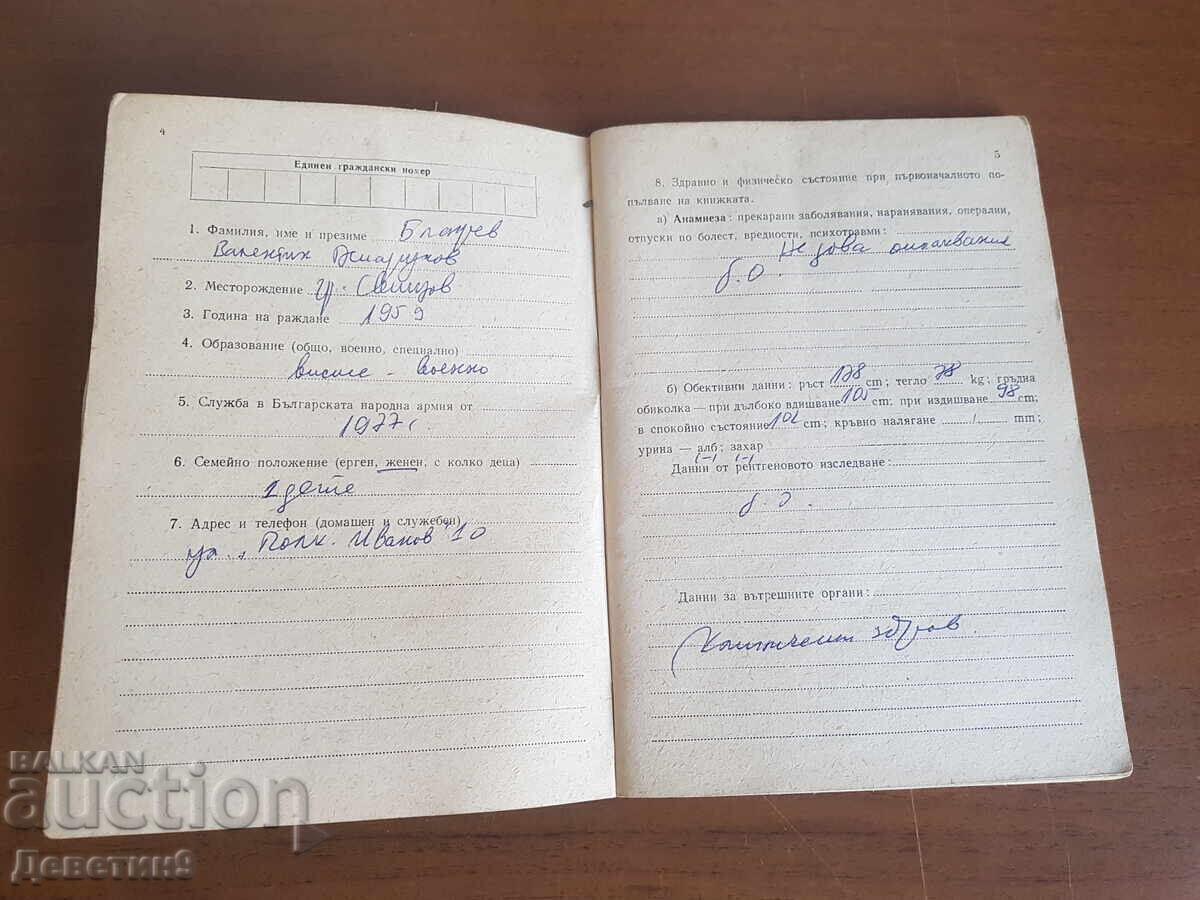 4
Единен граждански номер
1. Фамилия, име и презиме
Валентин
2. Месторождение гр.
3. Година на раждане 1959
4. Образование (общо, военно, специално)
висше - военно
5. Служба в Българската народна армия от
1977 г.
6. Семейно положение (ерген, женен, с колко деца)
1 дете
7. Адрес и телефон (домашен и служебен)
ул. „Полк. Иванов" 10
5
8. Здравно и физическо състояние при първоначалното по-
пълване на книжката.
а) Анамнеза : прекарани заболявания, наранявания, операции,
отпуски по болест, вредности, психотравми :
Не дава оплаквания
б. О
б) Обективни данни : ръст 178 cm ; тегло 78 kg ; гръдна
обиколка — при дълбоко вдишване 105 cm; при издишване 98 cm;
в спокойно състояние 102 cm ; кръвно налягане / mm ;
урина — алб ; захар
(-) (-)
Данни от рентгеновото изследване :
б. О.
Данни за вътрешните органи :
здрав.
BALKAN
auction
Деветин9